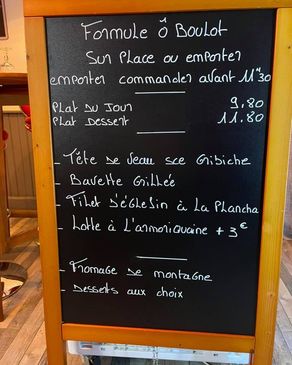 Formule Ô Boulot
Sur Place ou emporter
emporter commander avant 11"30
Plat du Jour 9.80
Plat Dessert 11.80
- Tête de veau sce Gibiche
- Bavette Grillée
- Filet D'églefin à La Plancha
- Lotte à L'armoriquaine + 3€
- Fromage de montagne
- Desserts aux choix